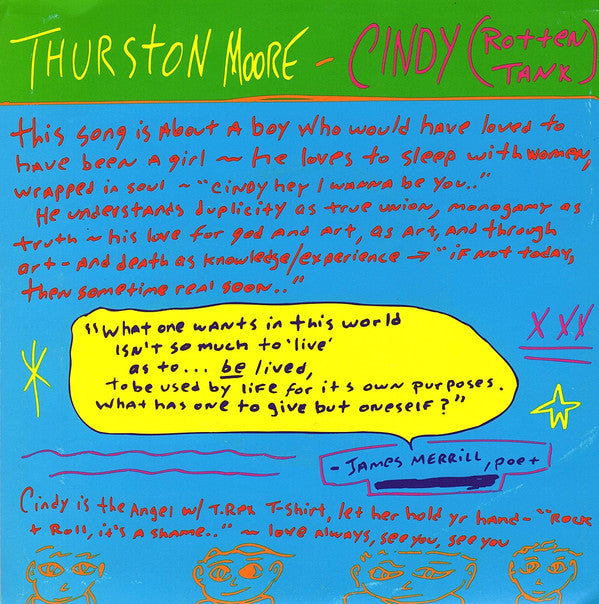 THURSTON MOORE - CINDY (ROTTEN
TANX)
this song is About A boy Who would have loved to
have been A girl ~ He loves to sleep with women,
wrapped in soul ~ "CiNDY hey I wANNA be you.."
He understands duplicity as true union, monogamy as
truth ~ his love for god and art, as art, and through
art - and death as knowledge/experience → "if not today,
then sometime real soon.."
"What one wants in this world
isn't so much to 'live'
as to... be lived,
to be used by life for its own purposes.
What has one to give but oneself?"
XXX
- JAMES MERRILL, poet
Cindy is the Angel w/ T.Rex T-Shirt, let her hold yr hand - "Rock
+ Roll, it's a shame.." ~ love always, see you, see you